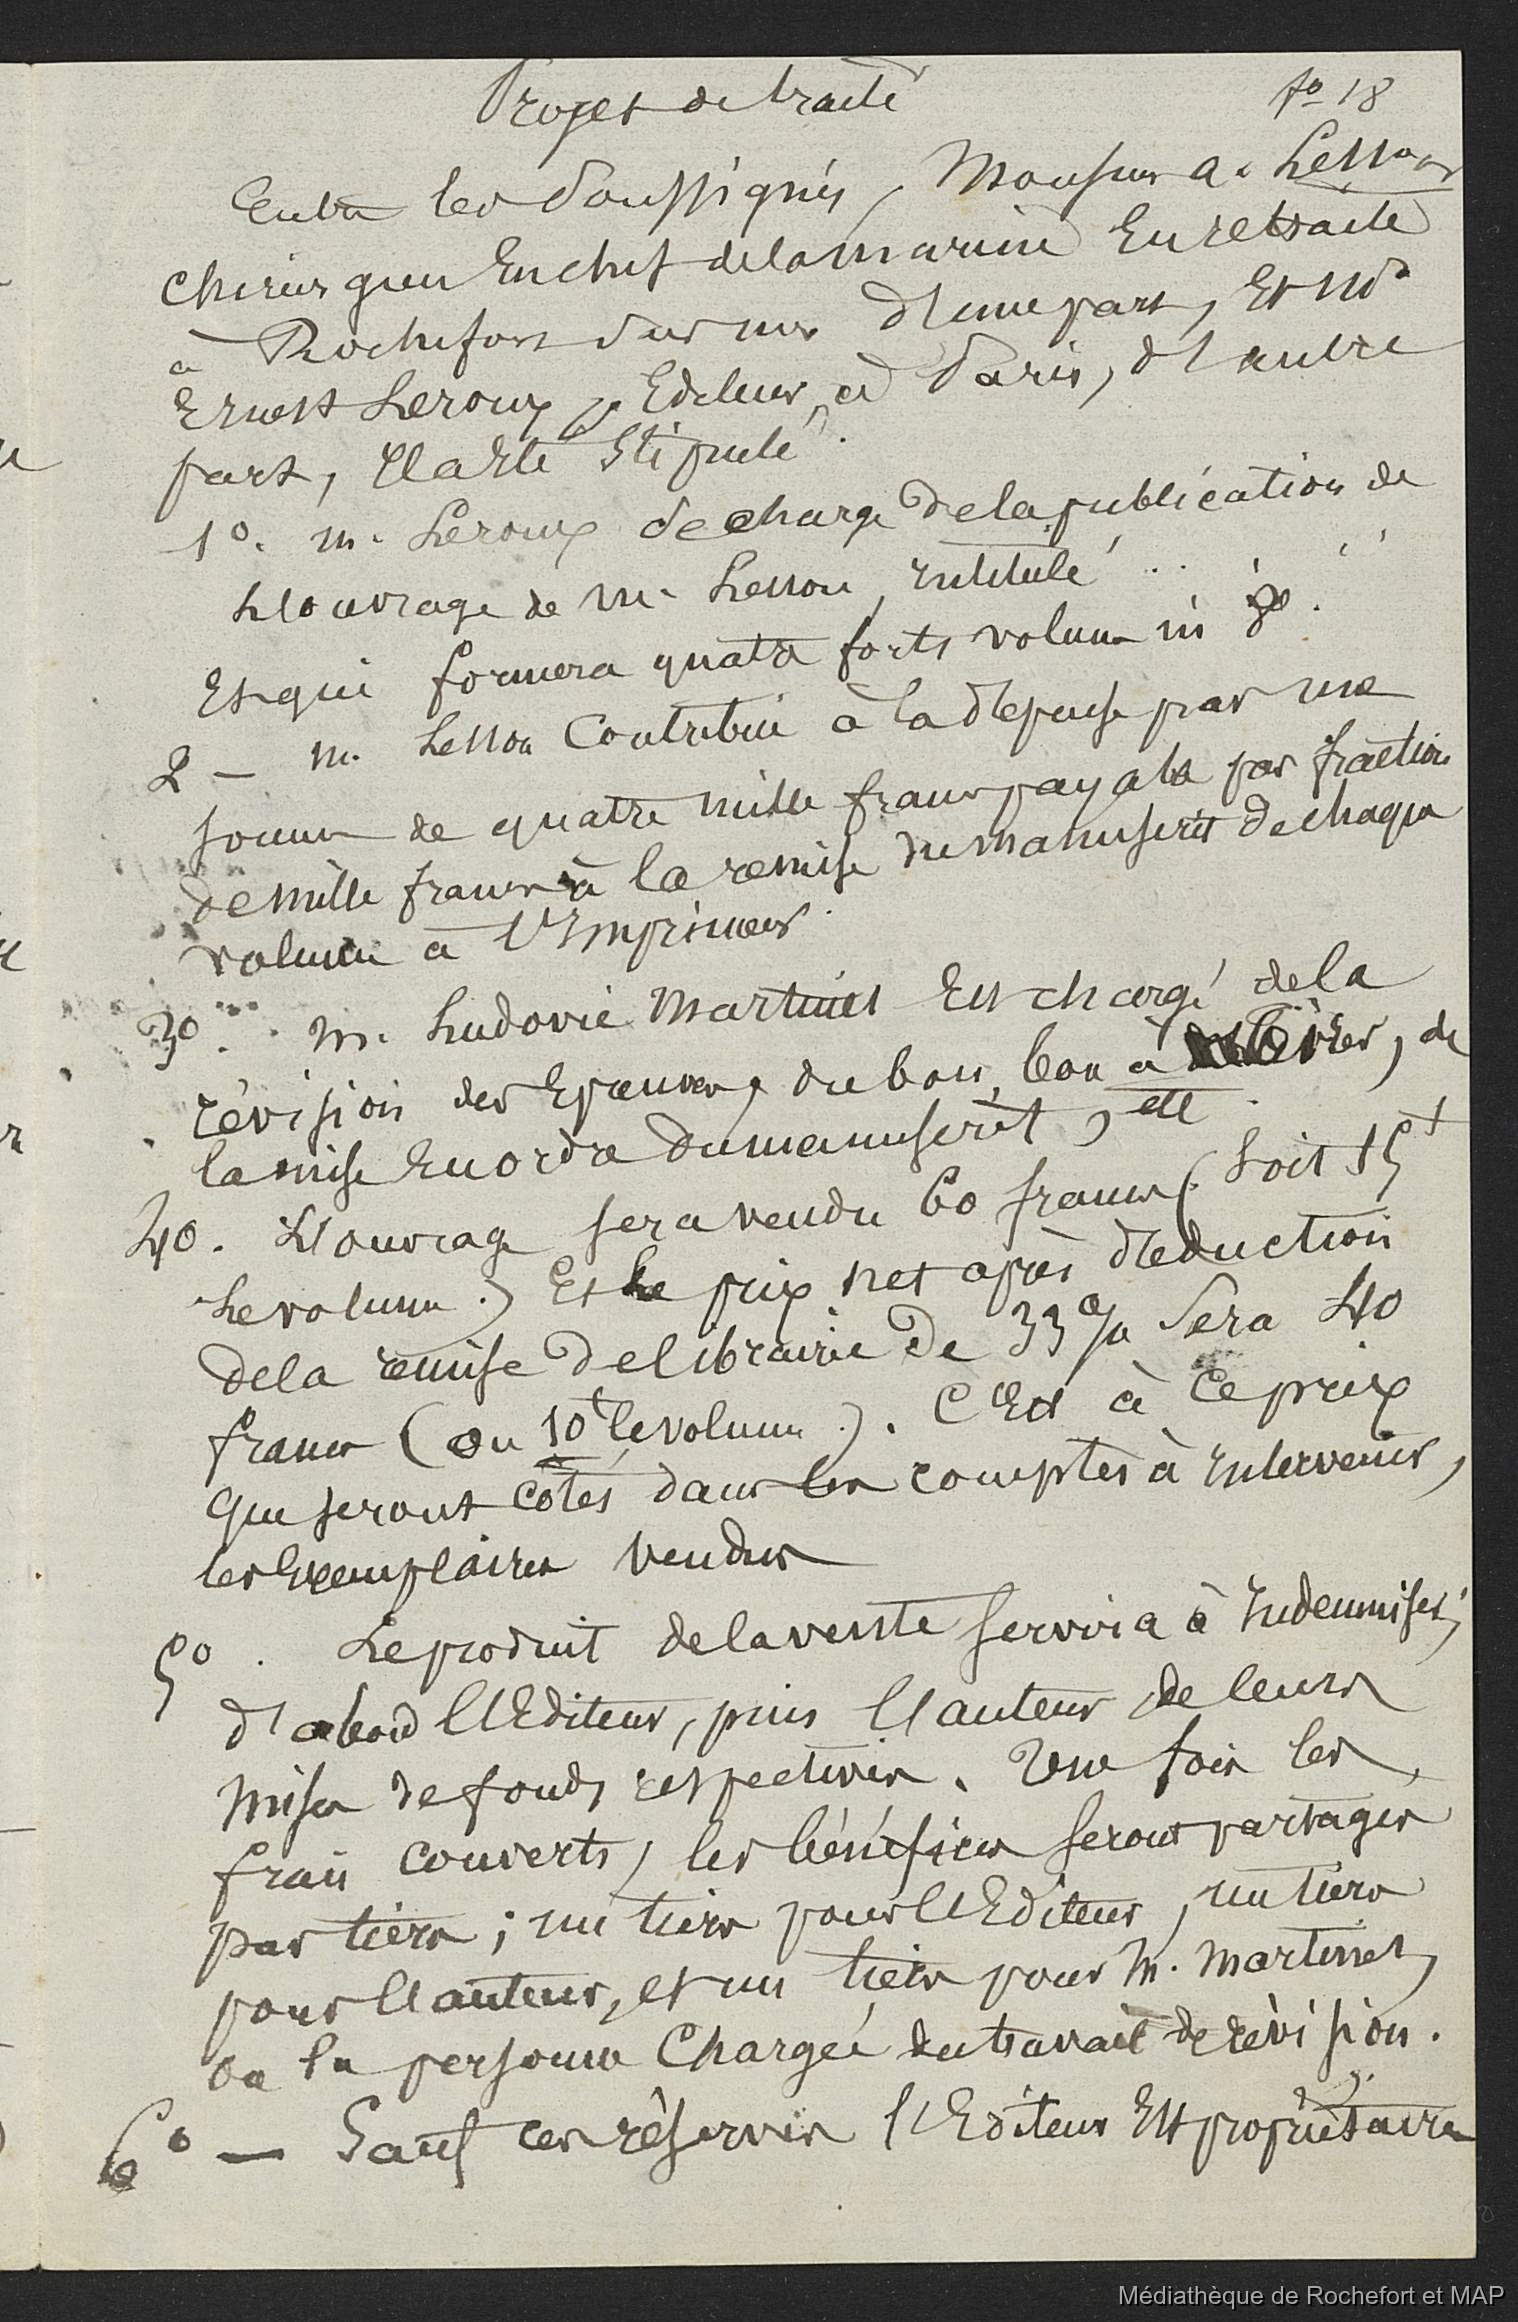 Projet de traité
fo 18
Entre les Soussignés, Monsieur A. Lesson
chirurgien En chef de la marine En retraite
à Rochefort sur mer d'une part, Et Mr
Ernest Leroux, Editeur, à Paris, d'autre
part, Il a Eté Stipulé.
1o. M. Leroux se charge de la publication de
L'ouvrage de M. Lesson, intitulé ..
Et qui formera quatre forts volumes in 8o.
2 — M. Lesson Contribue à la dépense par une
somme de quatre mille francs payable par fraction
de mille francs à la remise du manuscrit de chaque
volume à l'Imprimeur.
3o. M. Ludovic Martinet Est chargé de la
révision des Epreuves, du bon, bon à tirer, de
la mise En ordre du manuscrit, etc.
4o. L'ouvrage sera vendu 60 francs (soit 15f
Le volume.) Et le prix net après déduction
de la remise de librairie de 33 % Sera 40
francs (ou 10f le volume.). C'Est à Ce prix
que seront cotés dans les comptes à intervenir,
les Exemplaires vendus
5o. Le produit de la vente servira à indemniser,
d'abord l'Editeur, puis l'auteur de leurs
mises de fonds respectives. Une fois les
frais couverts, les bénéfices seront partagés
par tiers; un tiers pour l'Editeur, un tiers
pour l'auteur, et un tiers pour M. Martinet,
ou la personne Chargée du travail de révision.
6o — Sauf ces réserves l'Editeur Est propriétaire
Médiathèque de Rochefort et MAP